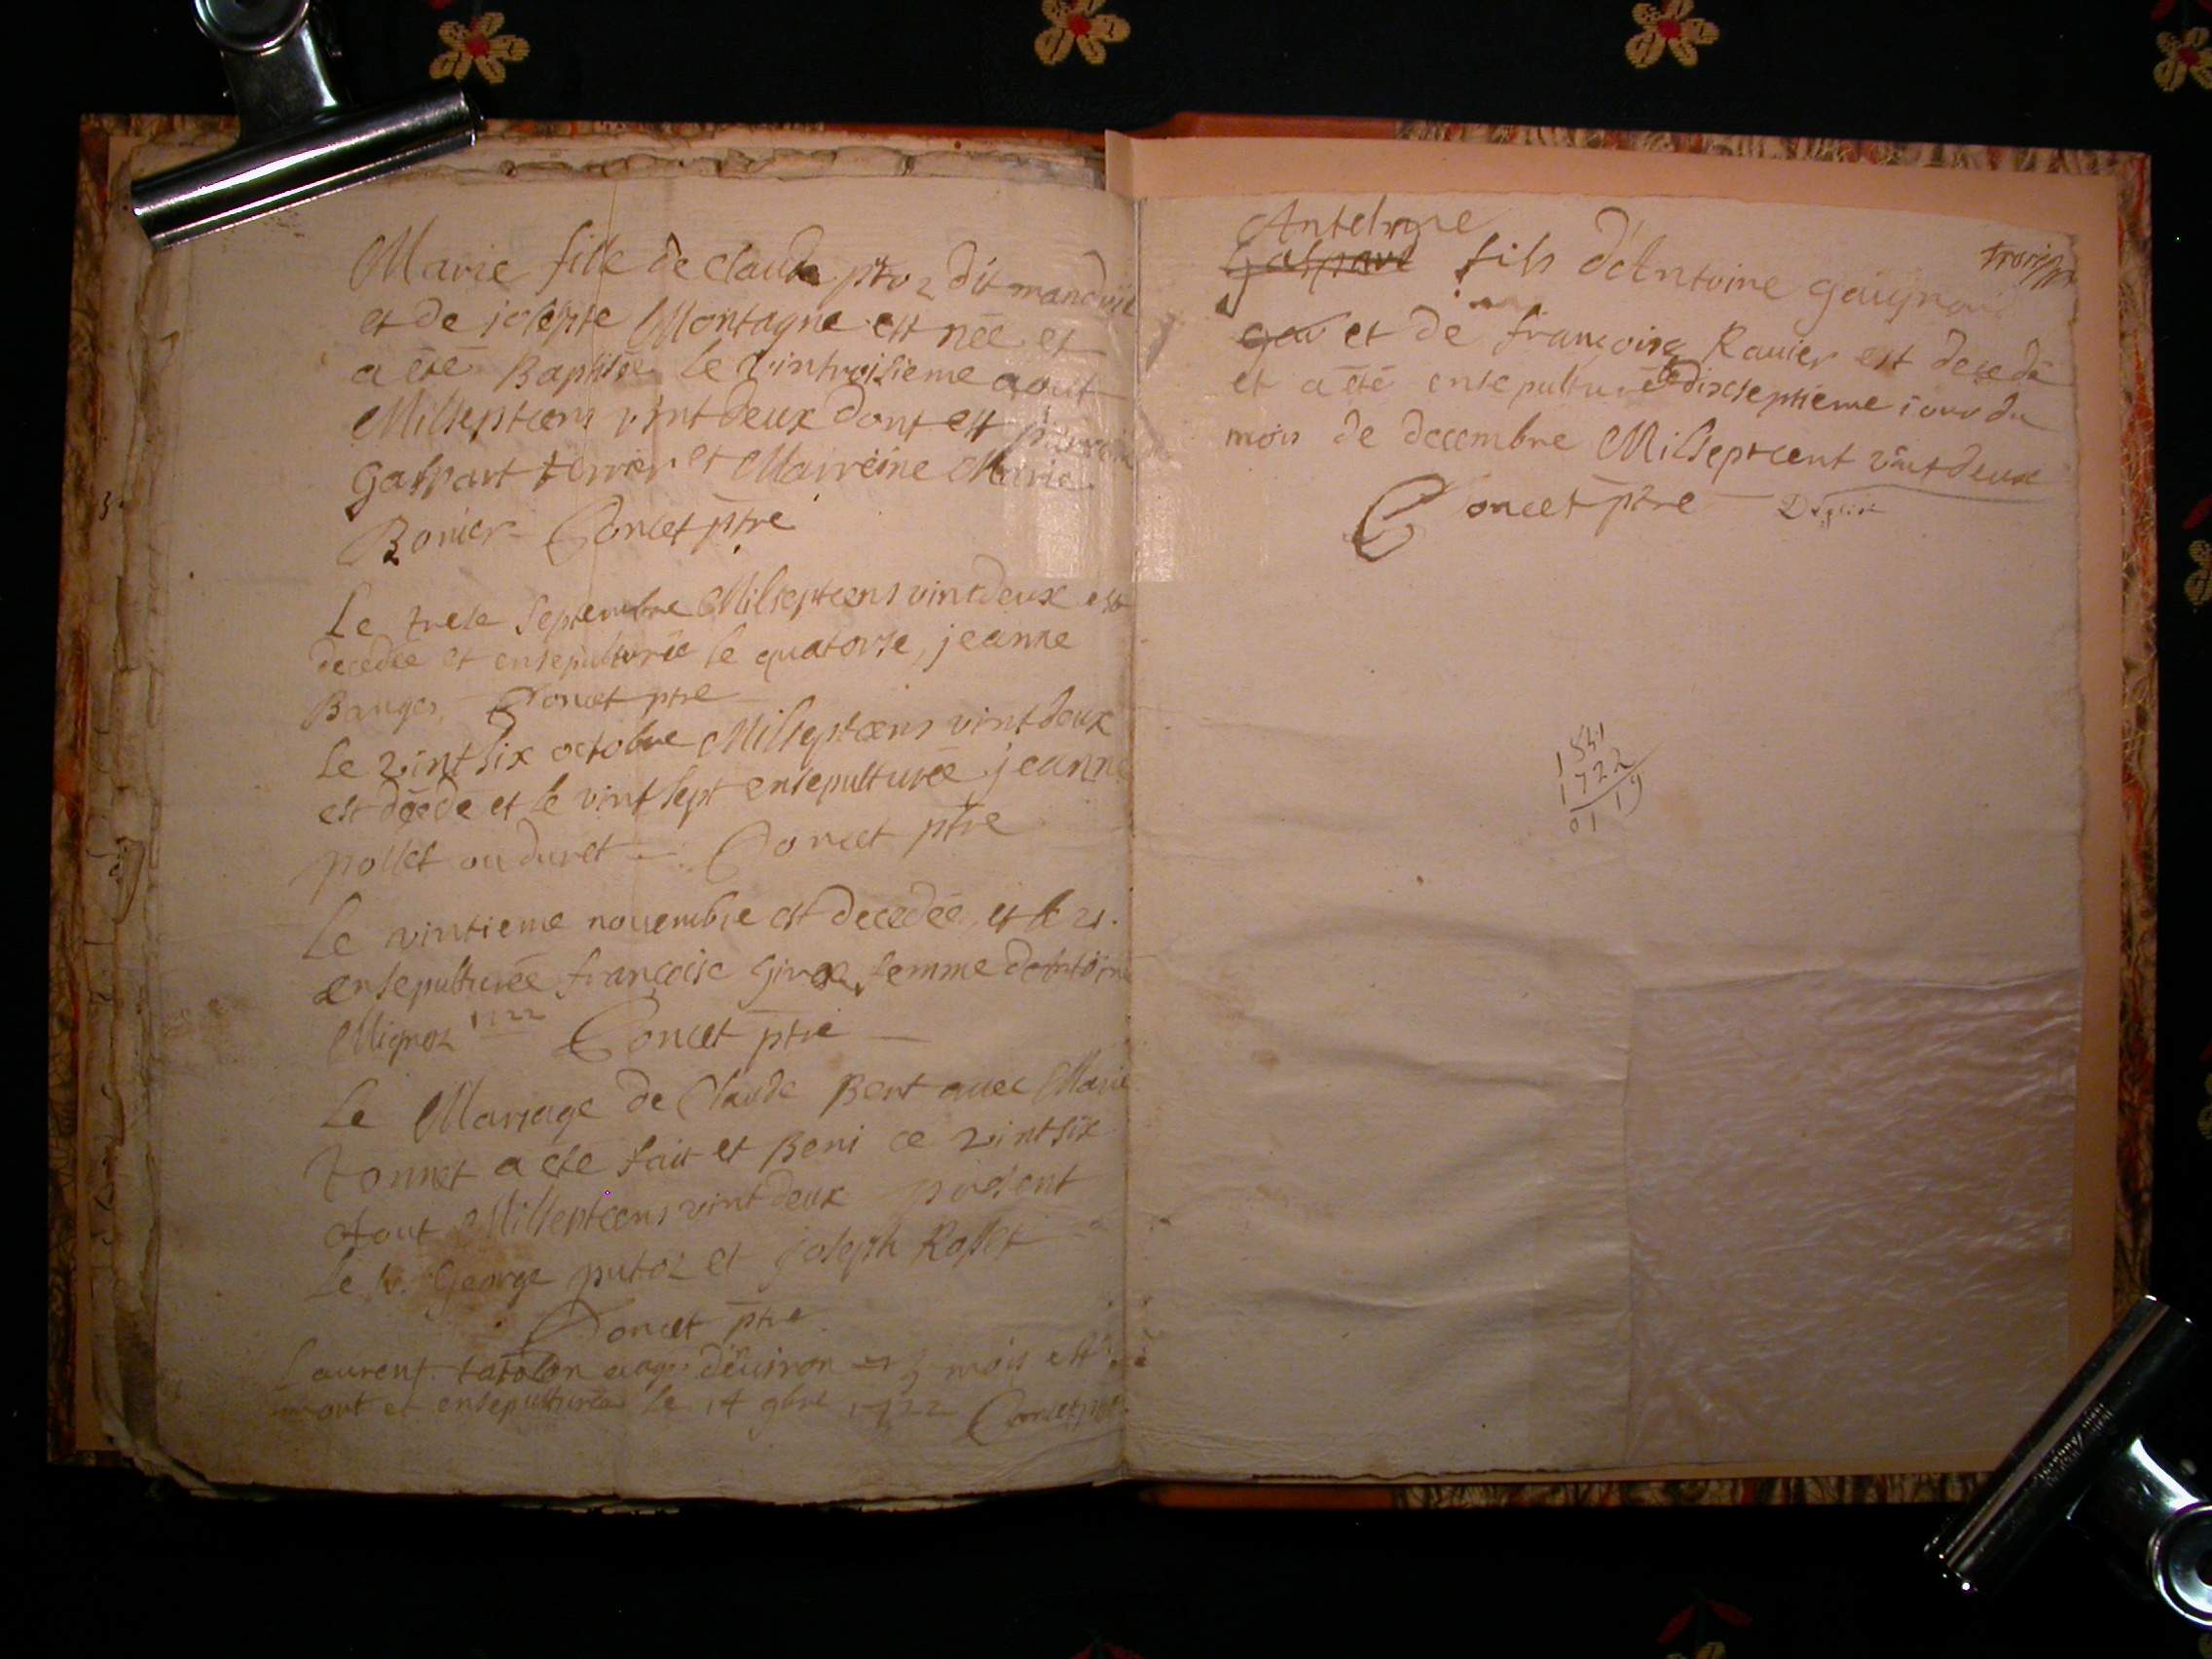 Marie fille de claude ptoz dit
et de josepte Montagne est née et
a êtê Baptisée le vintroisieme aout
Milseptcens vintdeux dont est
gaspart terrier et Marreine Marie
Bonier Concet ptre
Le trese septembre Milseptcens vintdeux est
decedée et ensepulturée le quatorse, jeanne
Banges, Concet ptre
Le vintsix octobre Milseptcens vintdeux
est décédé et le vintsept ensepulturée jeanne
pollet ou duret Concet ptre
Le vintieme nouembre est decedée et le 21.
ensepulturée francoise femme dantoine
Mignoz 1722 Concet ptre
Le Mariage de Claude Bert auec Marie
tonnet a eté fait et Beni ce vintsix
Aout Milseptcens vintdeux present
Le George putoz et joseph Rosset
Concet ptre
Laurent tatolon aagé denuiron 3 mois est
mort et ensepulturée le 14 gbre 1722 Concet ptre
Antelme
Gaspart fils d'Antoine
et de francoise Rauier est decedé
et a été ensepulturé le dixseptieme iour du
mois de decembre Milseptcent vintdeux
Concet ptre
1541
1722
01 19